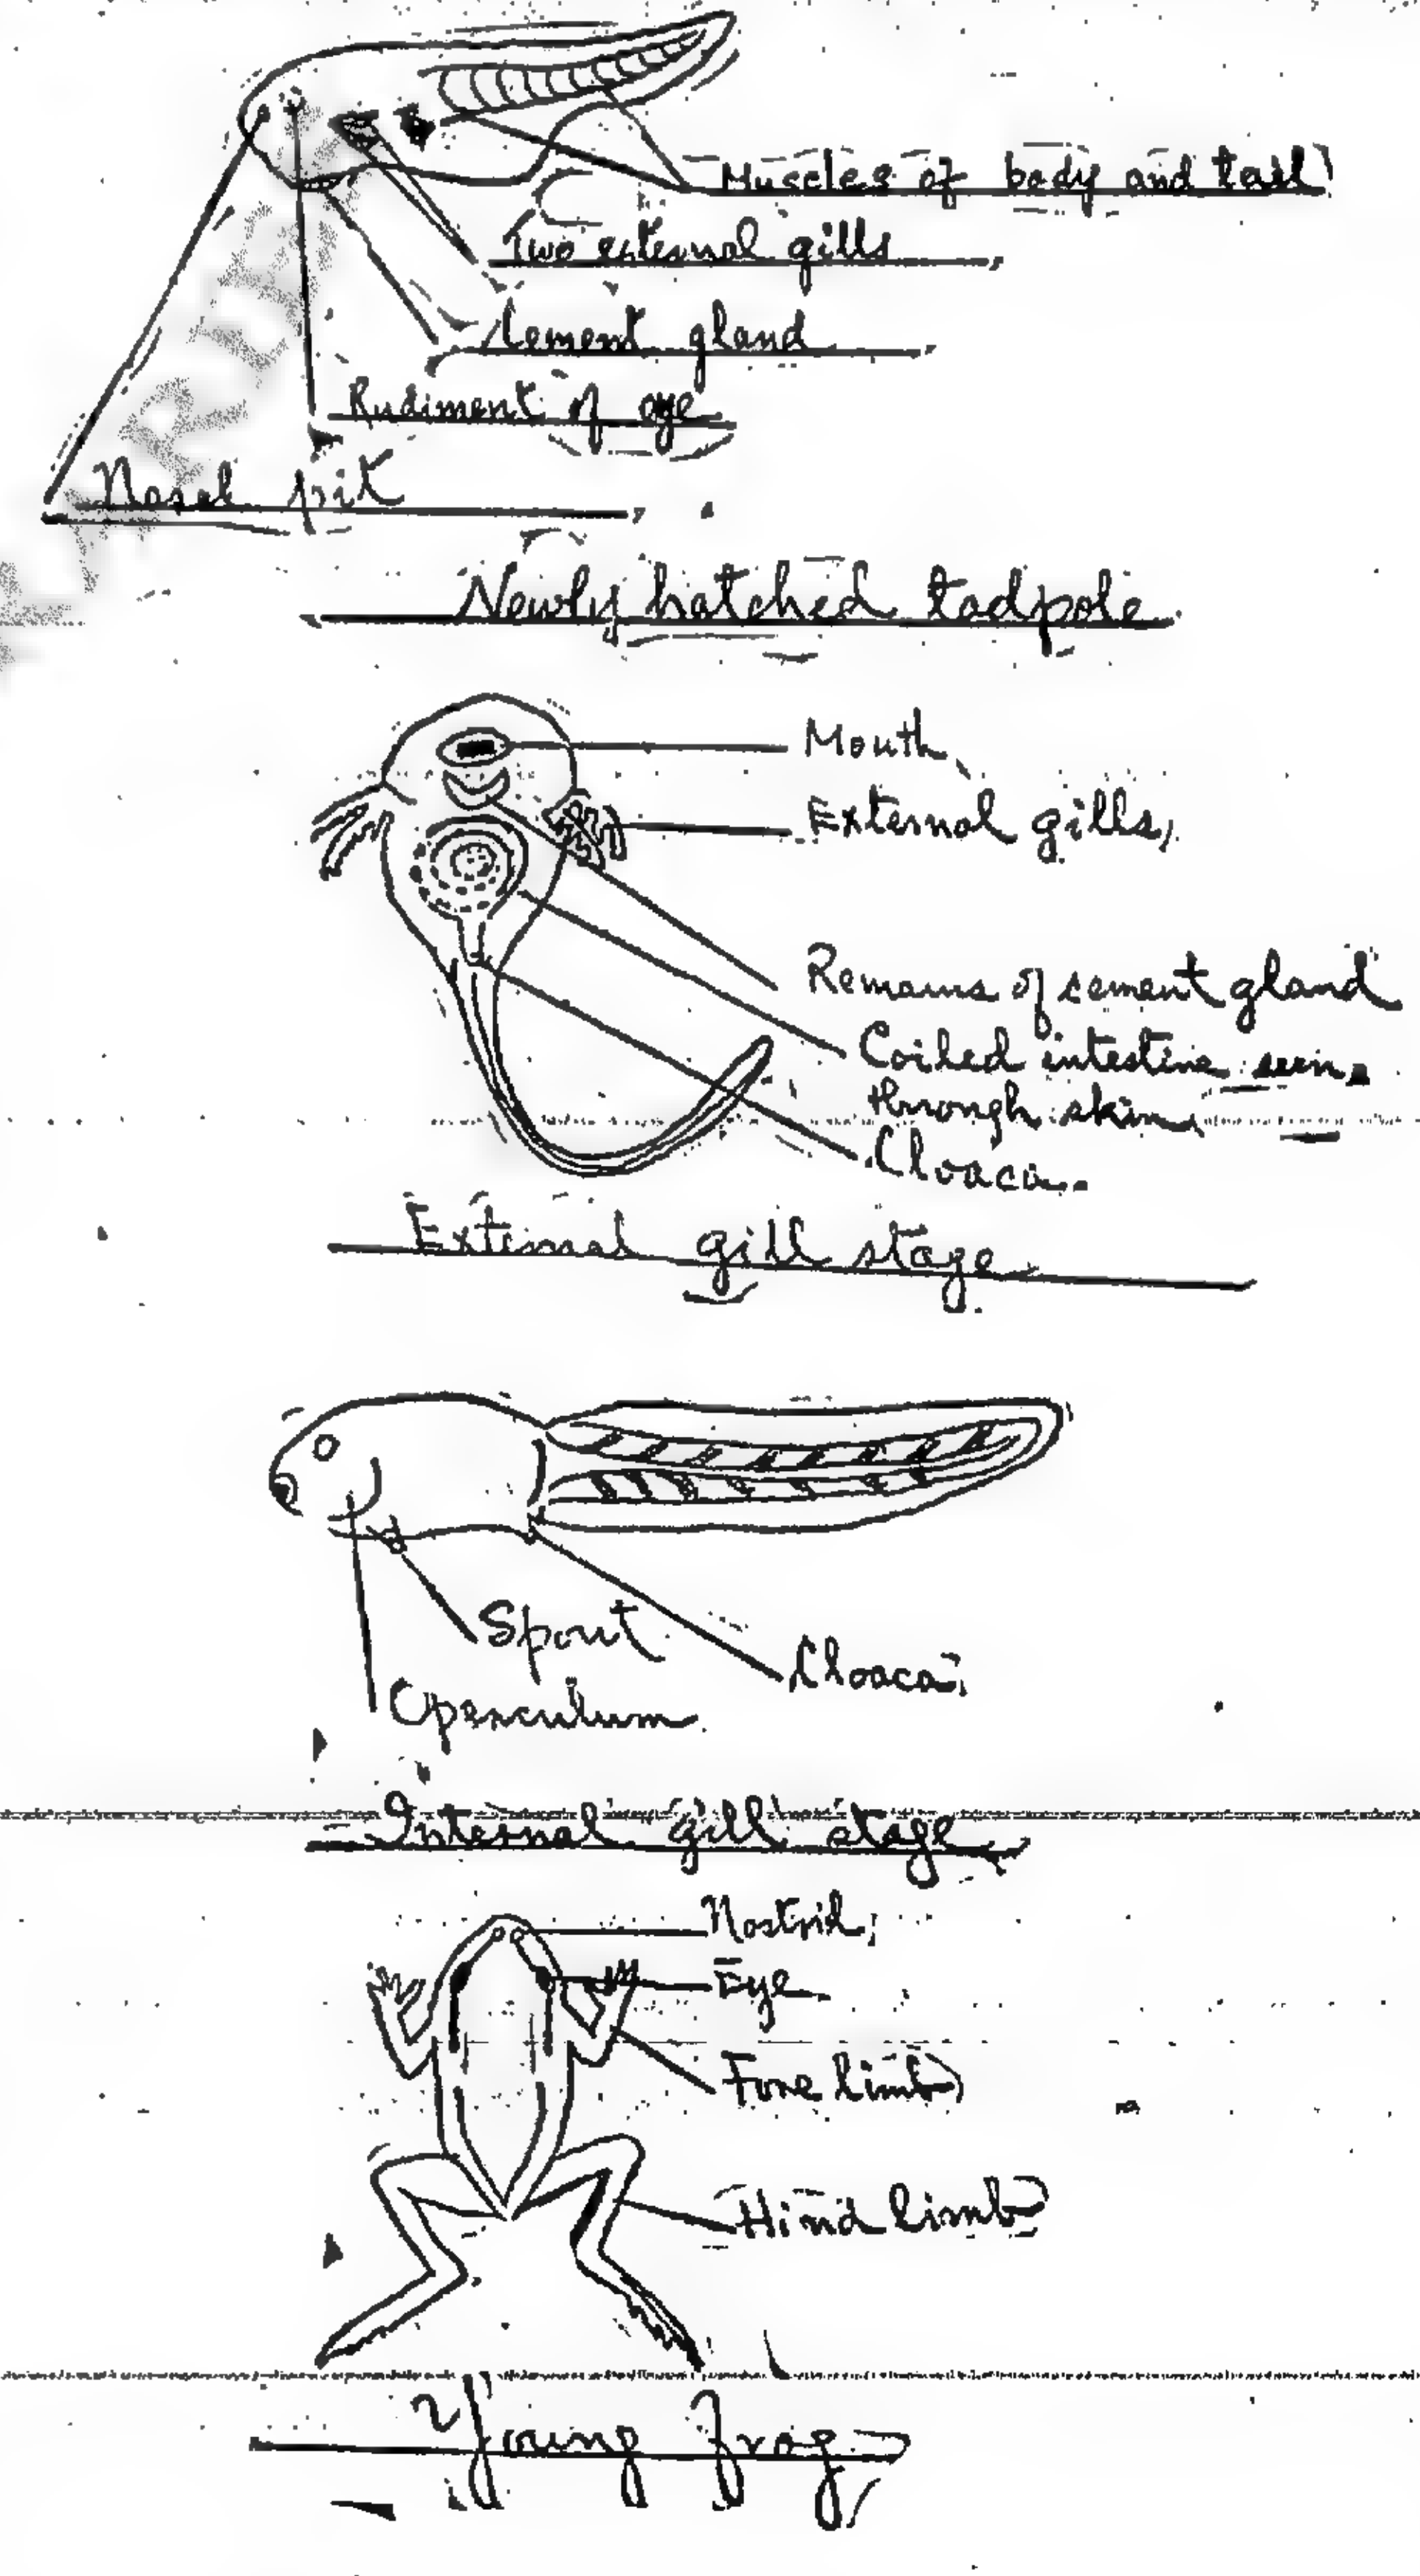 Muscles of body and tail
Two external gills
Cement gland
Rudiment of eye
Nasal pit
Newly hatched tadpole
Mouth
External gills
Remains of cement gland
Coiled intestine seen
through skin
Cloaca
External gill stage
Spout
Cloaca
Operculum
Internal gill stage
Nostril
Eye
Fore limb
Hind limb
Young frog